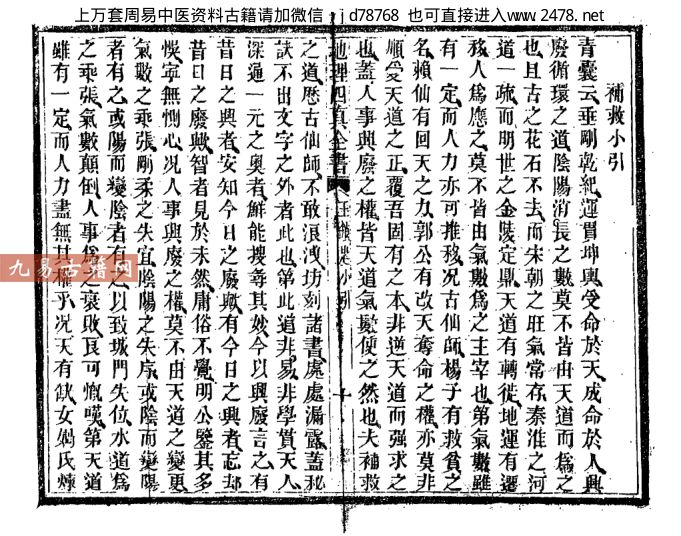 上万套周易中医资料古籍请加微信:jd78768 也可直接进入www.2478.net
補救小引
青囊云垂剛乾紀運貫坤輿受命於天成命於人興
廢循環之道陰陽消長之數莫不皆由天道而為之
也且古之花石不去而宋朝之旺氣常存秦淮之河
道一疏而明世之金陵定鼎天道有轉徙地運有遷
移人為應之莫不皆由氣數為之主宰也第氣數雖
有一定而人力亦可推移况古仙師楊子有救貧之
名賴仙有回天之力郭公有改天奪命之權亦莫非
順受天道之正覆吾固有之本非逆天道而强求之
也蓋人事興廢之權皆天道氣數使之然也夫補救
地理四真全書
小引
十
之道歷古仙師不敢浪洩坊刻諸書處處漏露蓋秘
訣不出文字之外者此也第此道非易非學貫天人
深通一元之奥者鮮能搜尋其妙今以興廢言之有
昔日之興者安知今日之廢歟有今日之興者忘却
昔日之廢歟智者見於未然庸俗不覺明公鑒其多
悞寧無惻心况人事興廢之權莫不由天道之變更
氣數之乖張剛柔之失宜陰陽之失序或陰而變陽
者有之或陽而變陰者有之以致城門失位水道為
之乖張氣數顛倒人事為之衰敗良可慨嘆第天道
雖有一定而人力盡無其權乎况天有缺女媧氏煉
九易古籍网